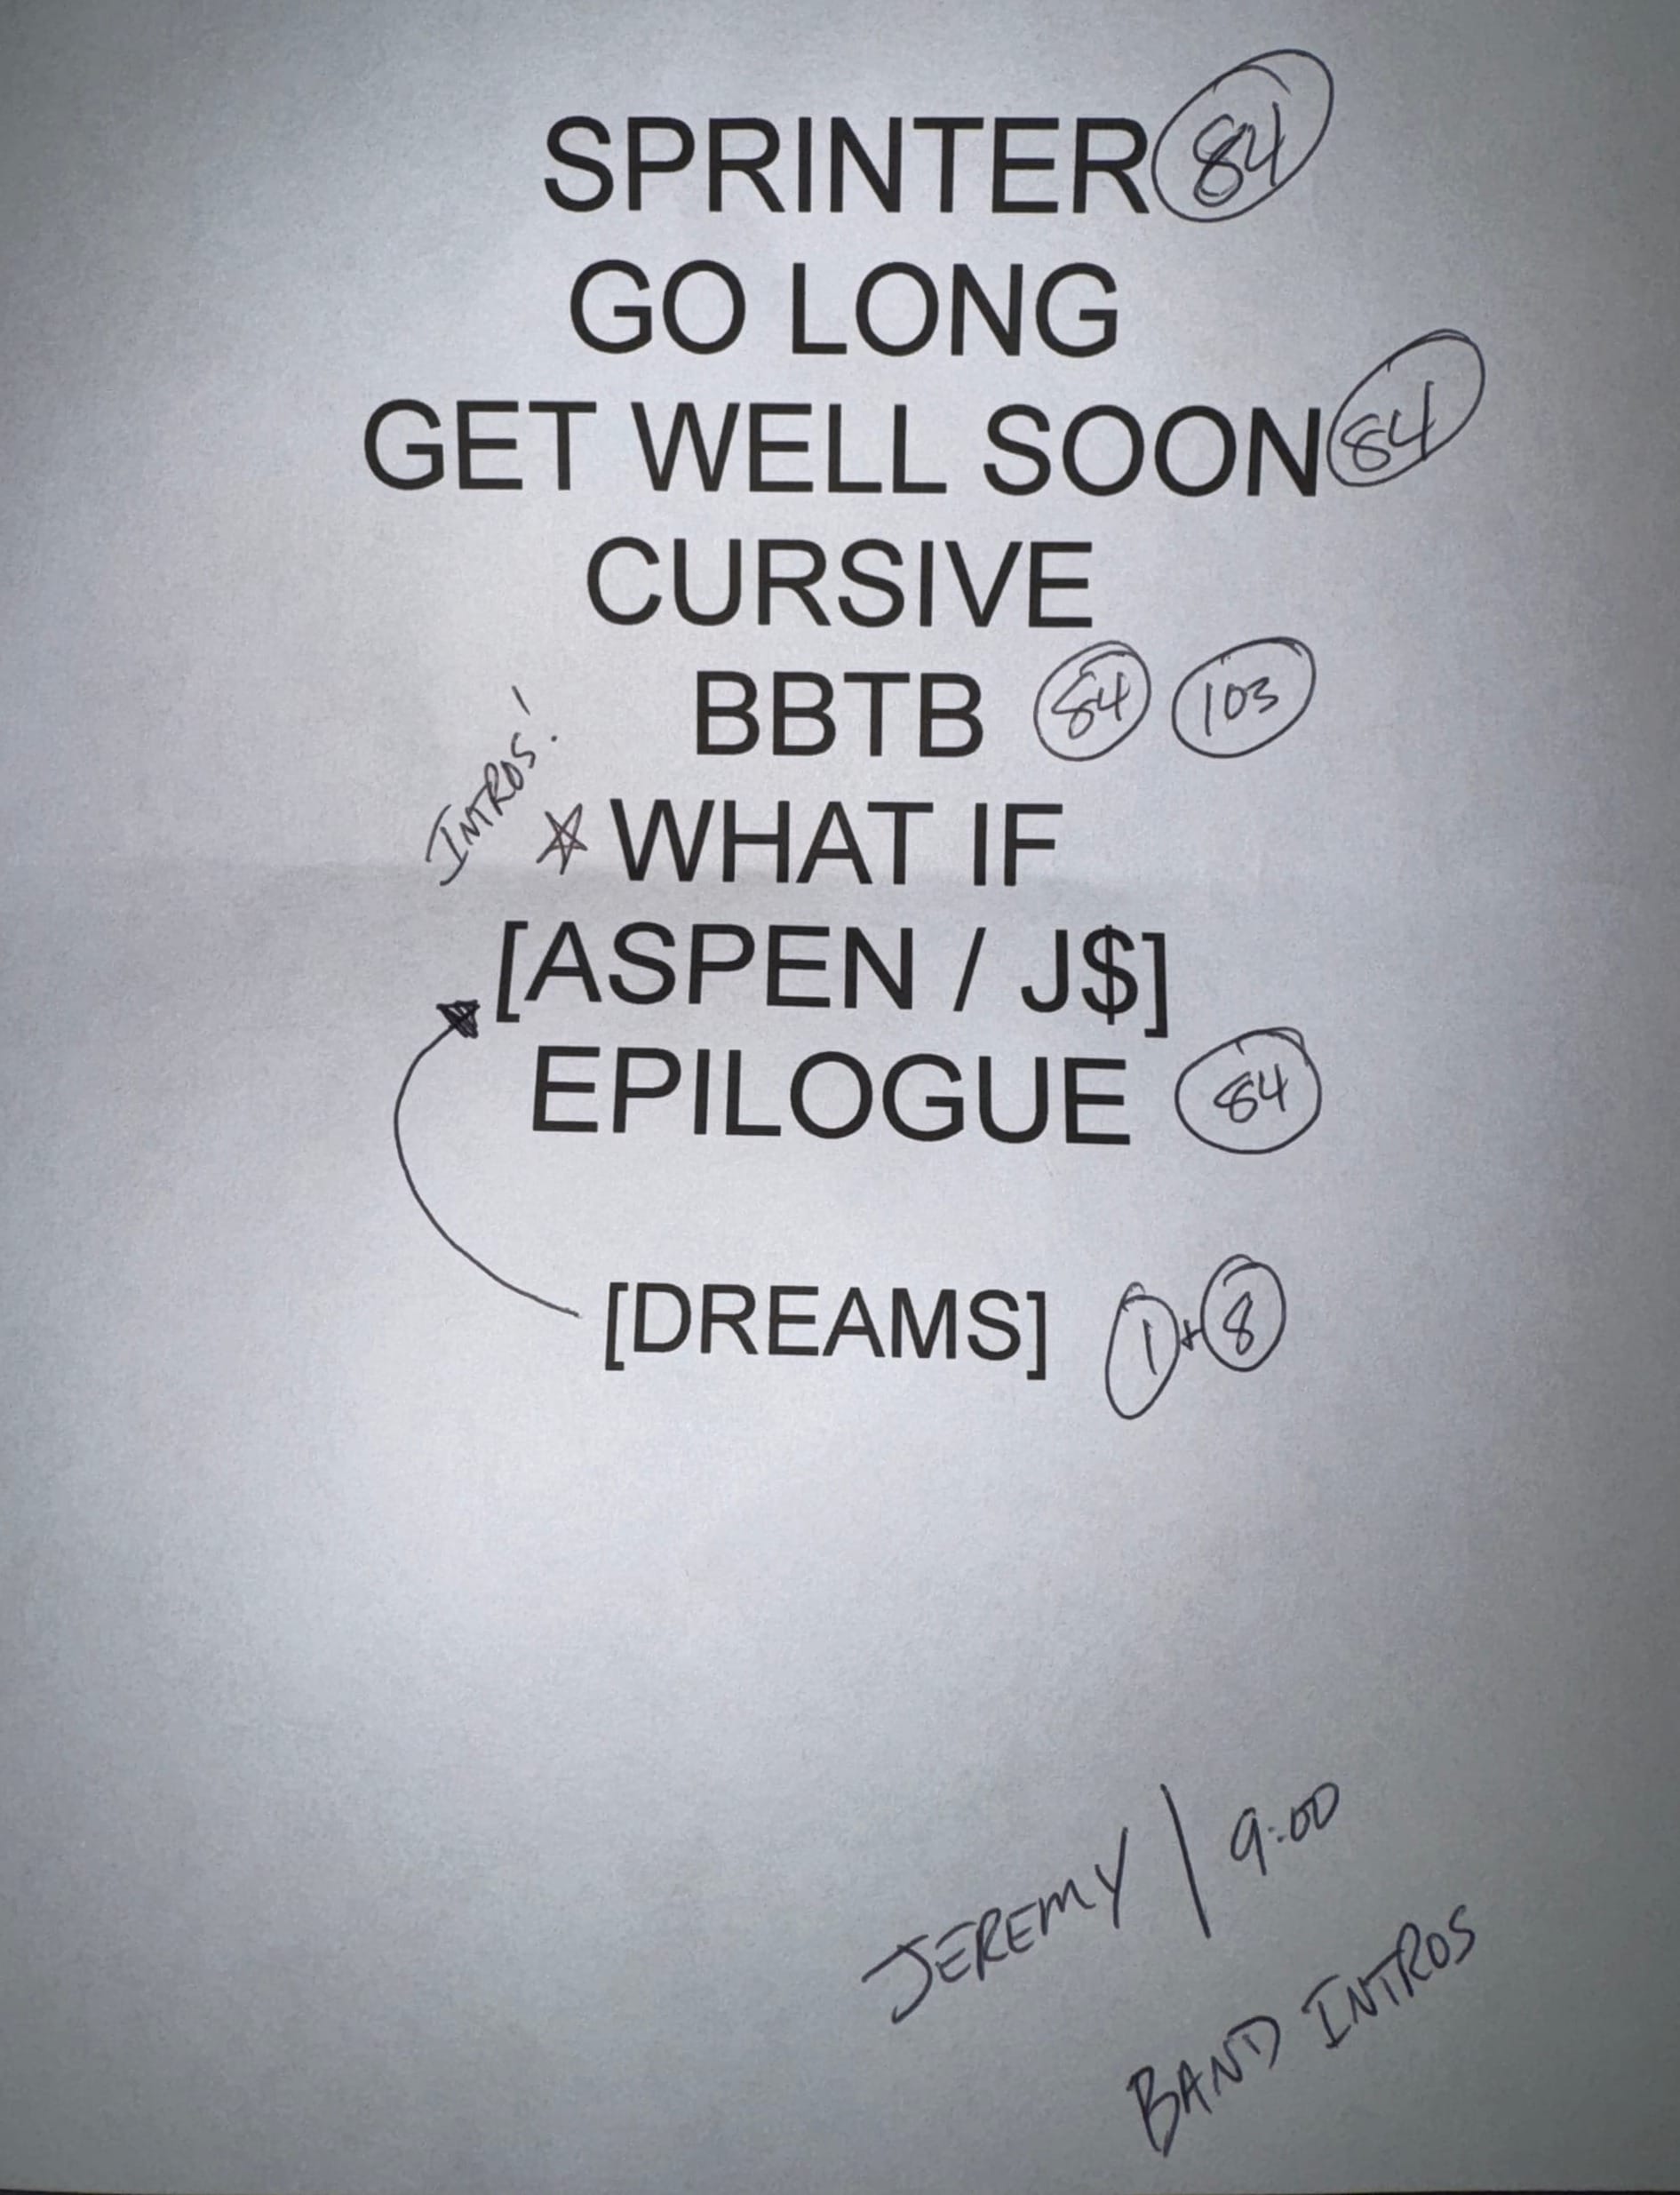 SPRINTER 84
GO LONG
GET WELL SOON 84
CURSIVE
BBTB 84 103
INTROS!
WHAT IF
[ASPEN / J$]
EPILOGUE 84
[DREAMS] 1 + 8
JEREMY | 9:00
BAND INTROS